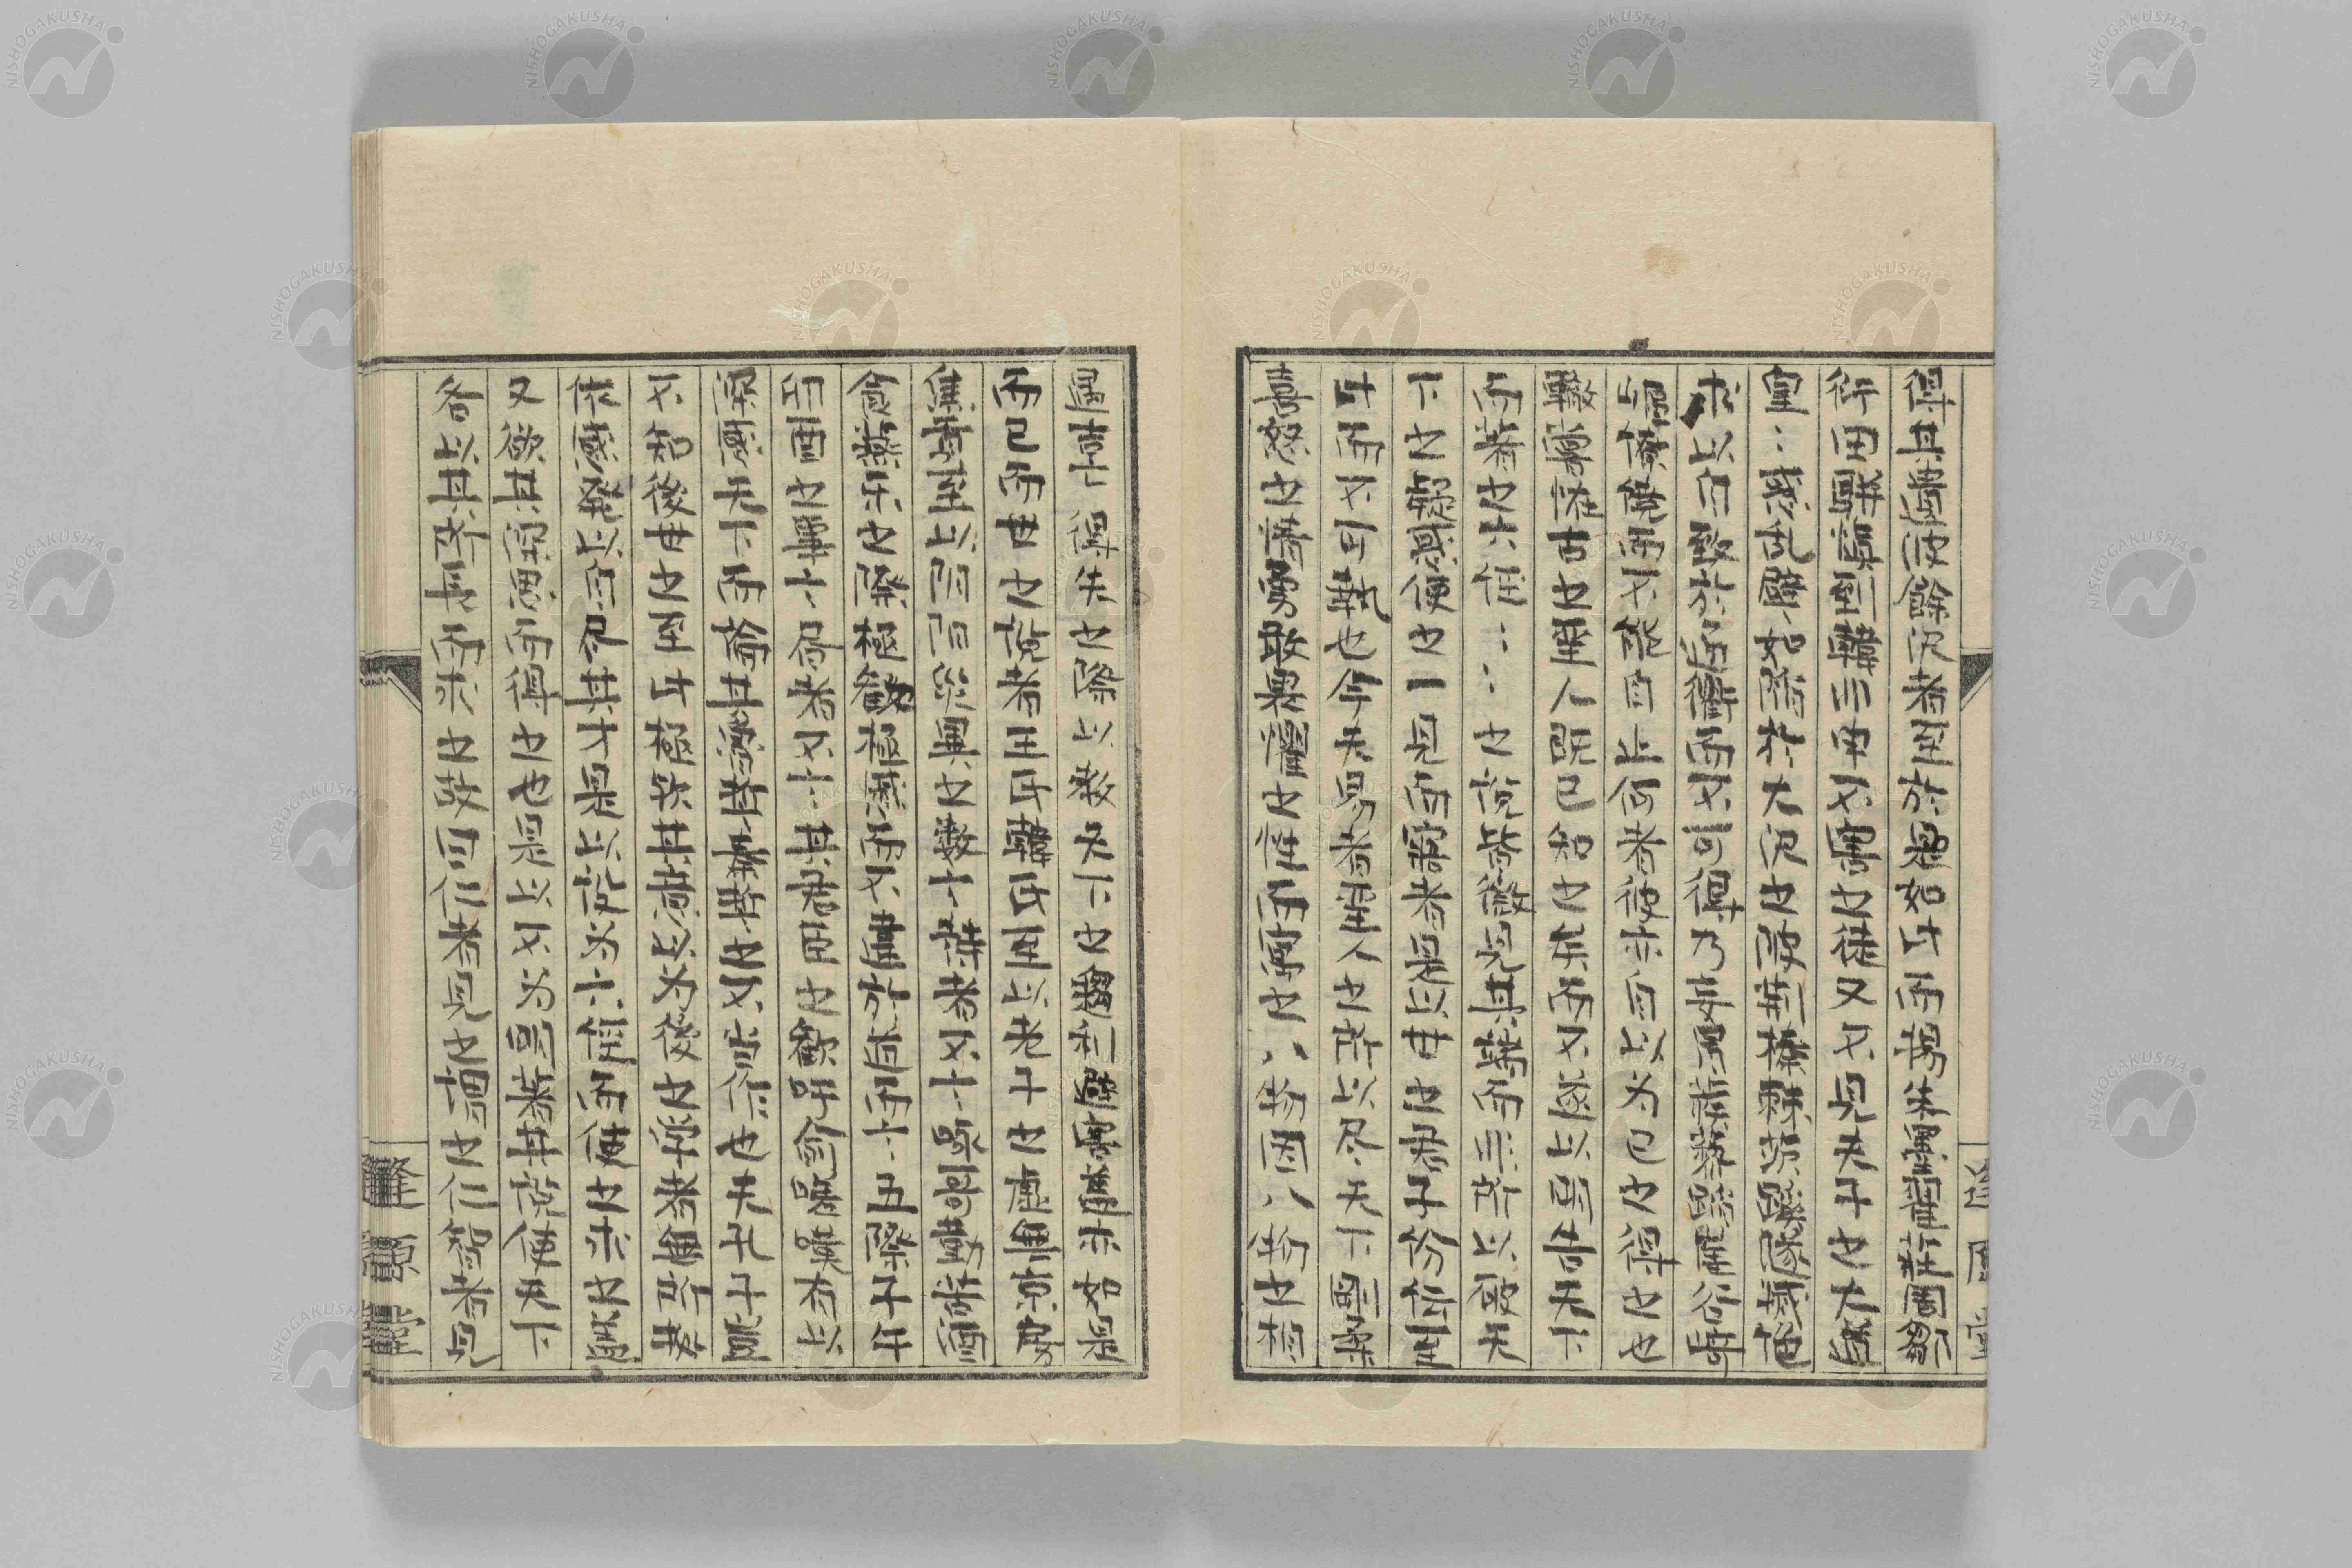 得其遺波餘汎者至於是如此而揚朱墨翟莊周鄒
衍田駢慎到韓非申不害之徒又不見夫子之大道
皇〻惑乱譬如陷於大沢之陂荊榛棘茨蹊隧滅絶
求以自致於通衢而不可得乃妄冒蒺藜蹈崖谷崎
嶇繚繞而不能自止何者彼亦自以為己之得之也
轍嘗怪古之聖人既已知之矣而不遂以明告天下
而著之六經〻〻之說皆微見其端而非所以破天
下之疑惑使之一見而寤者是以世之君子紛紛至
此而不可執也今夫易者聖人之所以尽天下剛柔
喜怒之情勇敢畏懼之性而寓之八物因八物之相
遇吉凶得失之際以教天下之趨利避害蓋亦如是
而已而世之說者王氏韓氏至以老子之虛無京房
焦貢至以陰陽災異之數言詩者不言詠哥勤苦酒
食燕樂之際極歡極戚而不違於道而言五際子午
卯酉之事言書者不言其君臣之歡吁俞嗟嘆有以
深感天下而論其費誓秦誓之不當作也夫孔子豈
不知後世之至此極歟其意以為後之学者無所據
依感發以自尽其才是以設為六經而使之求之蓋
又欲其深思而得之也是以不為明著其説使天下
各以其所長而求之故曰仁者見之謂之仁智者見